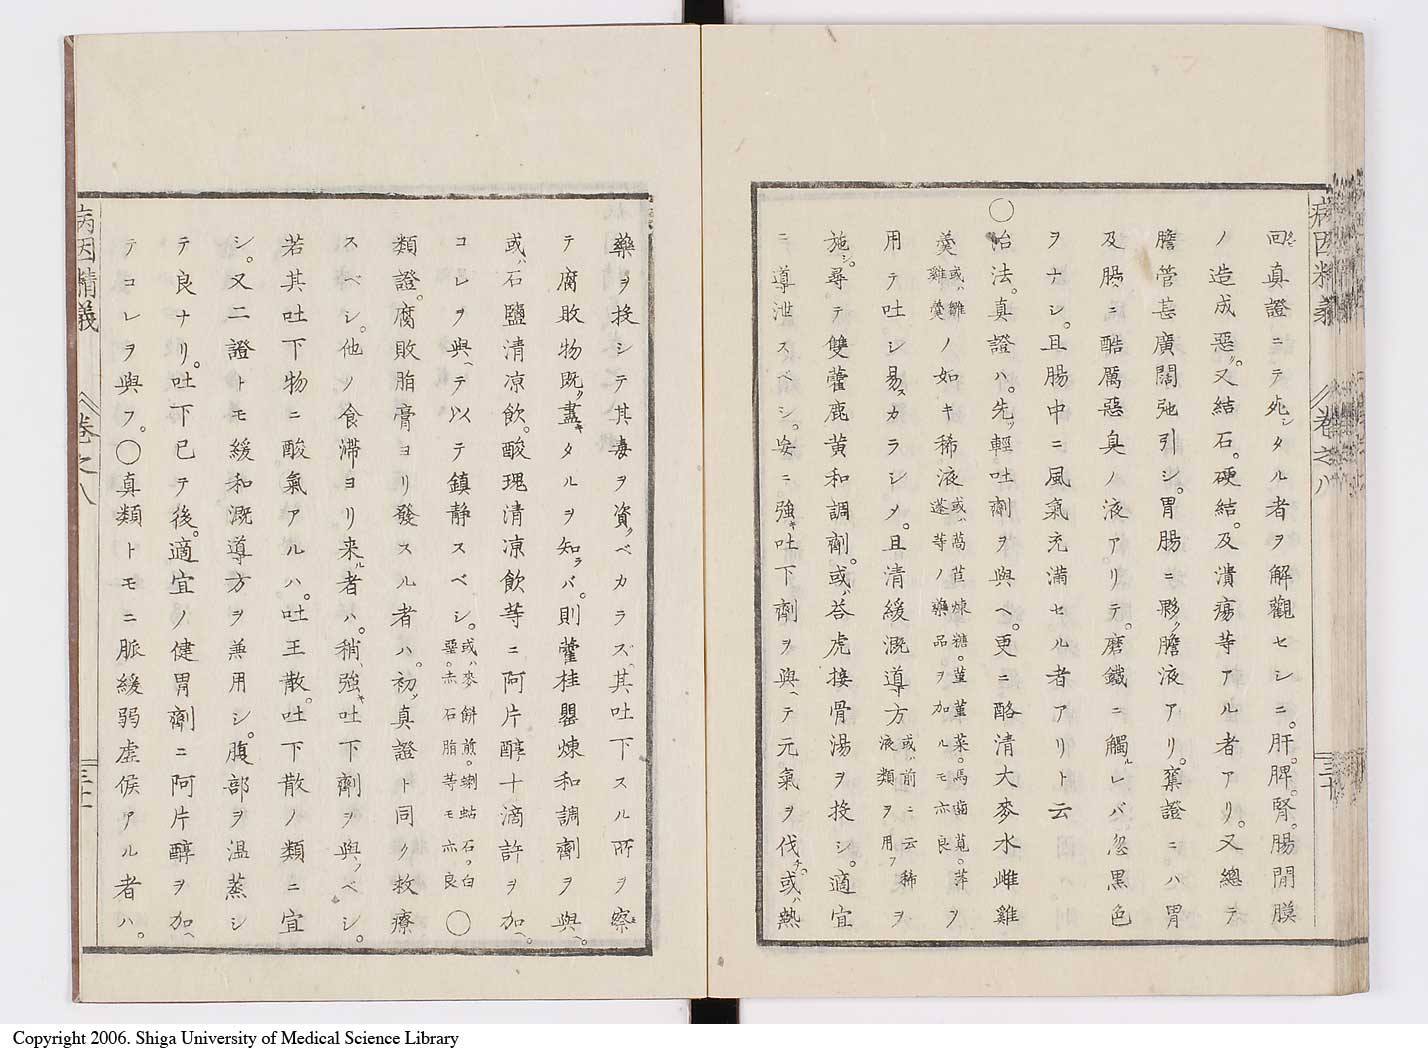 病因精義
巻之八
三十
回真證ニテ死シタル者ヲ解觀セシニ。肝。脾。腎。腸間膜
ノ造成惡ク。又結石。硬結。及潰瘍等アル者アリ。又總テ
膽管甚廣闊弛引シ。胃腸ニ夥ク膽液アリ。眞證ニハ胃
及腸ニ酷厲惡臭ノ液アリテ。磨鐵ニ觸ルレバ忽黒色
ヲナシ。且腸中ニ風氣充滿セル者アリト云
◯治法。真證ハ。先ツ輕吐劑ヲ與ヘ。更ニ酪清大麥水雌雞
羹或ハ雛雞羹ノ如キ稀液或ハ萵苣煉糖。菫菫菜。馬齒莧。萍蓬等ノ藥品ヲ加ルモ亦良ヲ
用テ吐シ易スカラシメ。且清緩溉導方或ハ前ニ云稀液類ヲ用フヲ
施シ。尋テ雙藿鹿黄和調劑。或ハ荅虎接骨湯ヲ投シ。適宜
ニ導泄スベシ。妄ニ強キ吐下劑ヲ與ヘテ元氣ヲ伐チ。或ハ熱
藥ヲ投シテ其毒ヲ資クベカラズ。其吐下スル所ヲ察
テ腐敗物既ク盡キタルヲ知ラバ。則藿桂罌煉和調劑ヲ與ヘ。
或ハ石鹽清凉飲。酸瑰清凉飲等ニ阿片醇十滴許ヲ加ヘ。
コレヲ與ヘテ以テ鎮静スベシ。或ハ麥餅煎。蝲蛄石。白堊。赤石脂等モ亦良◯
類證。腐敗脂膏ヨリ發スル者ハ。初メ真證ト同ク救療
スベシ。他ノ食滞ヨリ来ル者ハ。稍強キ吐下劑ヲ與フベシ。
若其吐下物ニ酸氣アルハ。吐王散。吐下散ノ類ニ宜
シ。又二證トモ緩和溉導方ヲ兼用シ。腹部ヲ温蒸シ
テ良ナリ。吐下已テ後。適宜ノ健胃劑ニ阿片醇ヲ加ヘ
テコレヲ與フ。◯真類トモニ脈緩弱虚候アル者ハ。
病因精義
巻之八
Copyright 2006. Shiga University of Medical Science Library